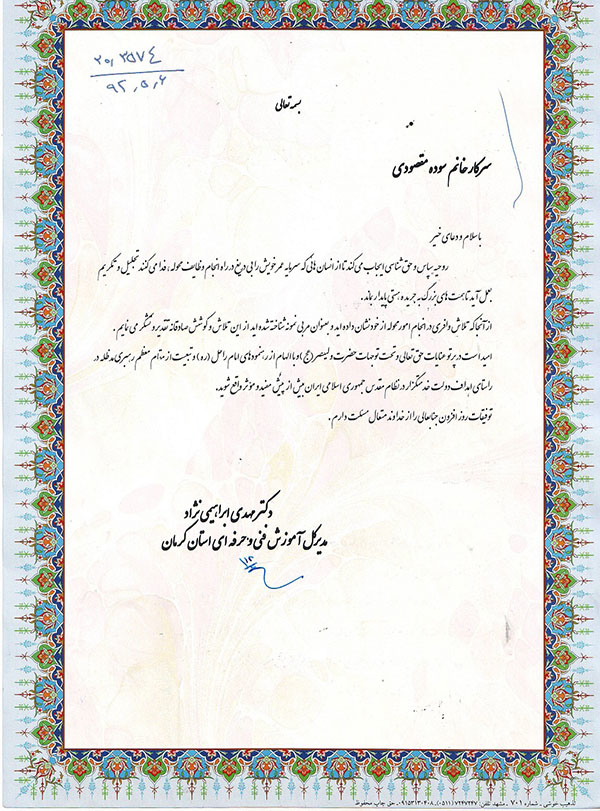 ۲۰/۳۵۷۴
۹۲/۵/۶
بسمه تعالی
سرکار خانم سوده مقصودی
با سلام و دعای خیر
روحیه سپاس و حق شناسی ایجاب می کند تا از انسان هایی که سرمایه عمر خویش را بی دریغ در راه انجام وظایف محوله، فدا می کنند تجلیل و تکریم
بعمل آید تا همت های بزرگ به جریده هستی پایدار بماند.
از آنجا که تلاش وافری در انجام امور محوله از خود نشان داده اید و بعنوان مربی نمونه شناخته شده اید از این تلاش و کوشش صادقانه تقدیر و تشکر می نمایم.
امید است در پرتو عنایات حق تعالی و تحت توجهات حضرت ولیعصر (عج) و با الهام از رهنمودهای امام راحل (ره) و تبعیت از مقام معظم رهبری مدظله در
راستای اهداف دولت خدمتگزار در نظام مقدس جمهوری اسلامی ایران بیش از پیش مفید و موثر واقع شوید.
توفیقات روز افزون جنابعالی را از خداوند متعال مسئلت دارم.
دکتر مهدی ابراهیمی نژاد
مدیرکل آموزش فنی و حرفه ای استان کرمان
۷۰۱ ، مشهد تلفن: ۷۲۴۷۲۴۷ (۰۵۱۱)، ۰۹۱۵۳۱۳۰۴۰۸ ، حق چاپ محفوظ